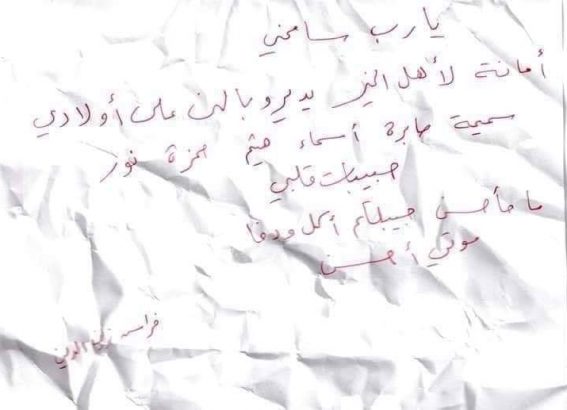 يارب سامحني
أمانة لأهل الخير يديرو بالهن على أولادي
سمية صابرة أسماء هيثم حمزة نور
حبيبات قلبي
ما مأحسن جيبلكم أكل ودفا
موتي أحسن
فراس زين الدين